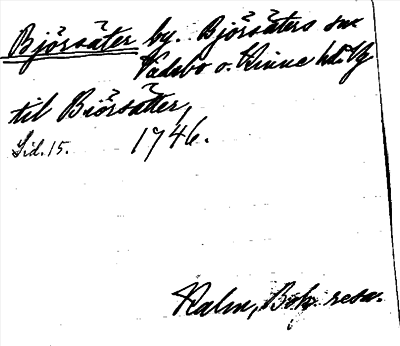 Björsäter by. Björsäters sn
Vadsbo o. Kinne hd Vg
til Biörsätter,
Sid. 15. 1746.
Kalm, Boh. resa.